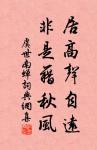 居高聲自遠
非是藉秋風
虞世南蟬詞典網集